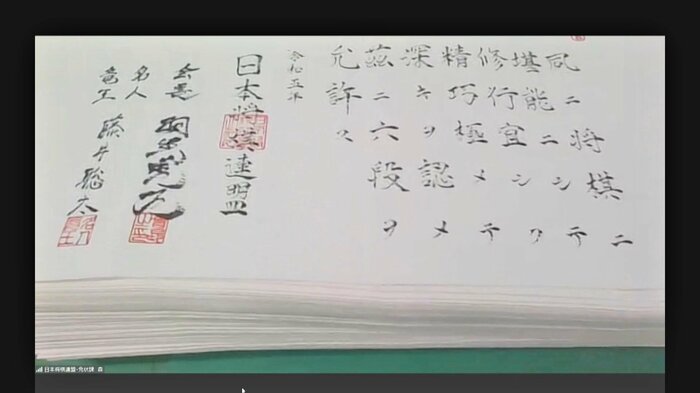 夙ニ将棋ニ
堪能ニシテ
修行宜シク
精巧極メテ
深キヲ認メ
茲ニ六段ヲ
允許ス
令和五年
日本将棋連盟
会長 羽生善治
名人
竜王 藤井聡太
日本将棋連盟・免状課 森